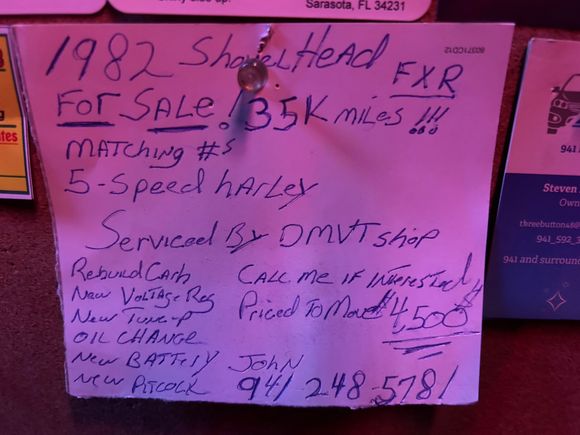 Sarasota, FL 34231
80371CD12
1982 ShovelHead
FXR
For SALE! 35K miles !!!
MATCHING #s
5-Speed harley
Serviced By DMVT shop
Rebuild Carb
CALL me IF InteresTed
New VolTage Reg
Priced To Move $4,500
New Tune-up
OIL CHANGE
New BATTery
JOHN
New PITCOCK
941-248-5781
941
Steven
Own
threebutton48@
941_592_
941 and surroun